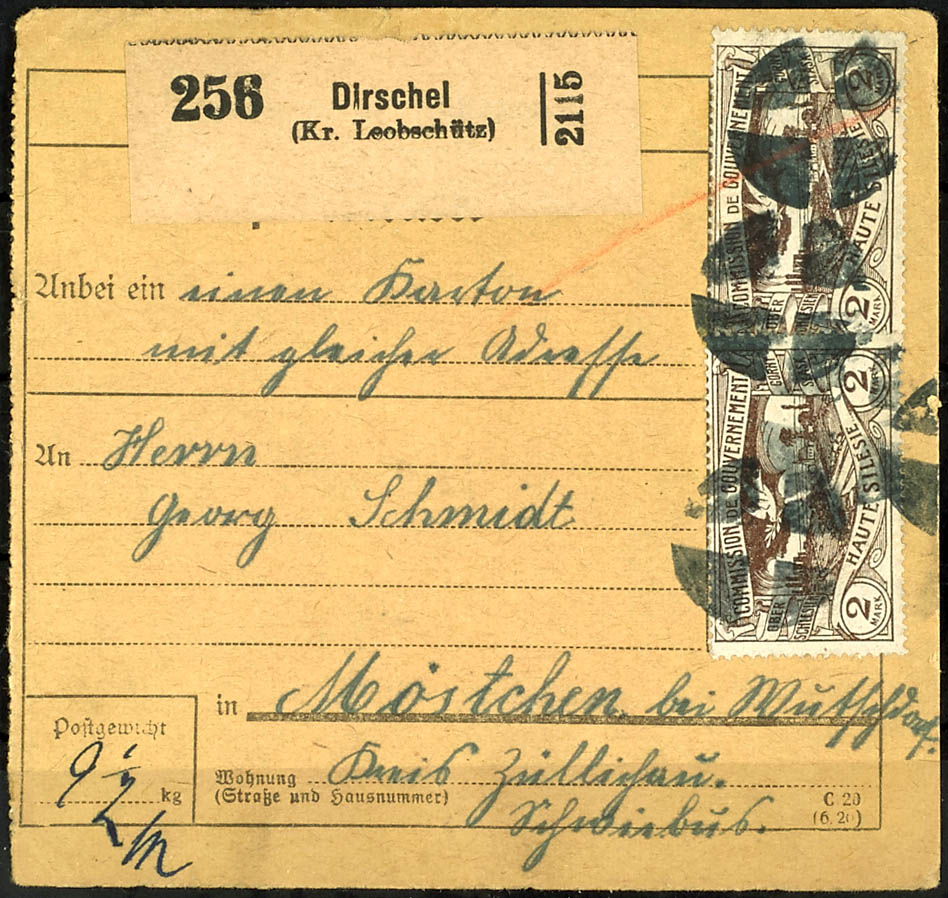 256 Dirschel
(Kr. Leobschütz)
2115
Anbei ein einen Karton
mit gleicher Adresse
An Herrn
Georg Schmidt
in Möstchen bei Wutschdorf.
Postgewicht
9 1/2 kg
Wohnung Kreis Züllichau.
(Straße und Hausnummer)
Schwiebus.
C 20
(6. 20)
COMMISSION DE GOUVERNEMENT
HAUTE SILESIE
OBER
GORNY
ŚLĄSK
2 MARK
2 MARK
COMMISSION DE GOUVERNEMENT
HAUTE SILESIE
OBER
SCHLESIEN
GORNY
ŚLĄSK
2 MARK
2 MARK